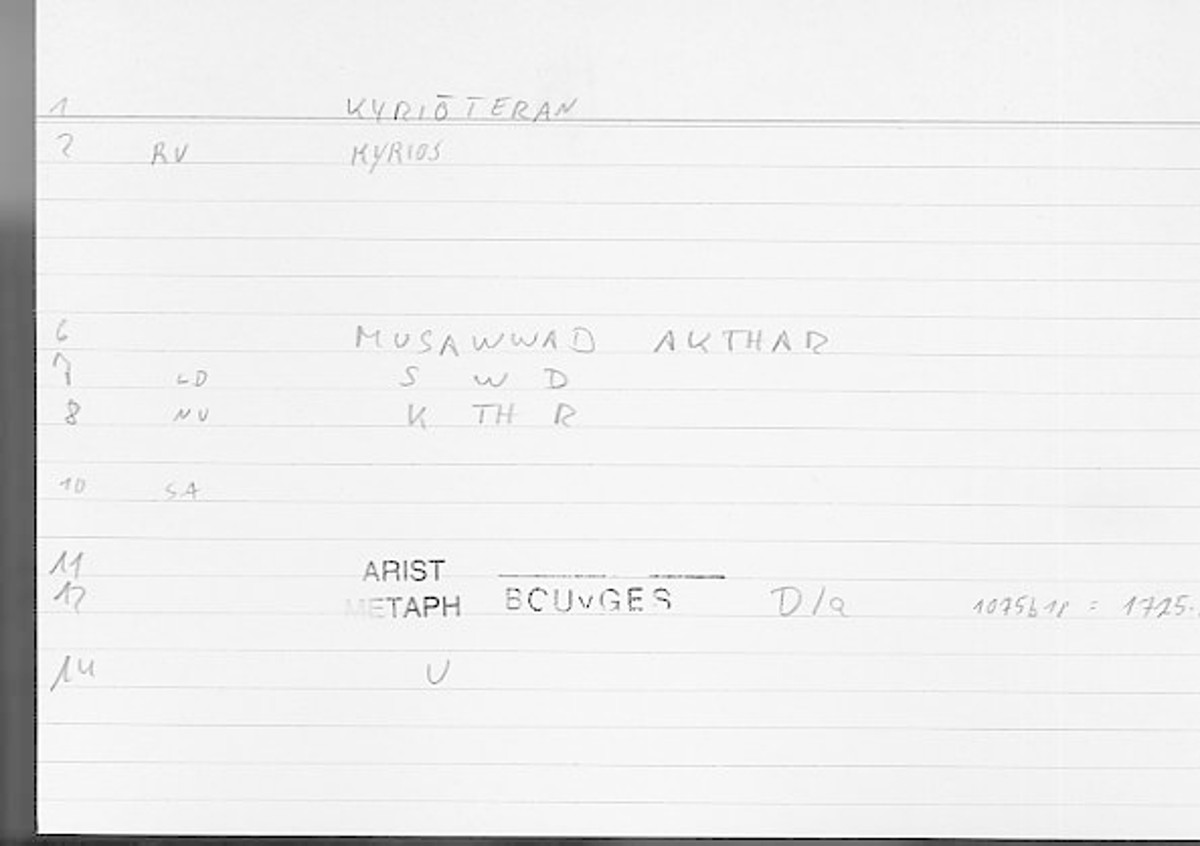 1 KYRIŌTERAN
2 RV KYRIOS
6 MUSAWWAD AKTHAR
7 LD S W D
8 NV K TH R
10 SA
11 ARIST
12 METAPH BOUvGES D/a 1075b18 = 1725.
14 U